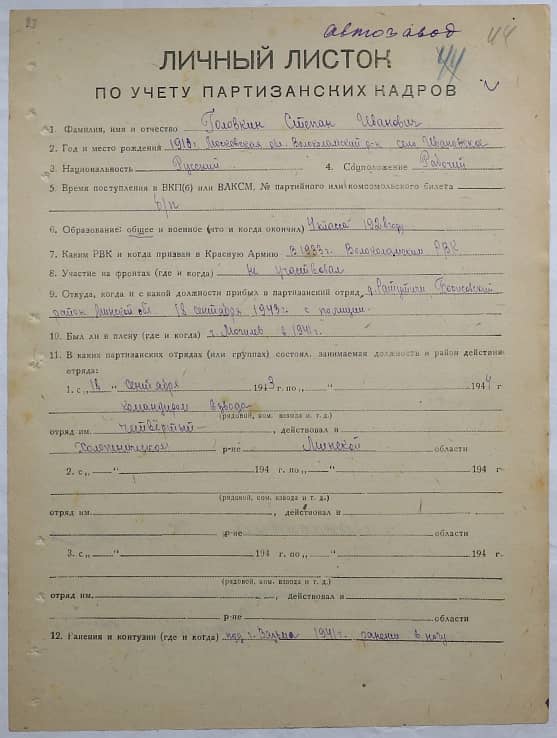 83
автозавод 44
44
ЛИЧНЫЙ ЛИСТОК
ПО УЧЕТУ ПАРТИЗАНСКИХ КАДРОВ
1. Фамилия, имя и отчество Головкин Степан Иванович
2. Год и место рождения 1913г. Московская обл. Волоколамский р-н село Ивановское
3. Национальность Русский 4. Соцположение Рабочий
5. Время поступления в ВКП(б) или ВЛКСМ, № партийного или комсомольского билета
б/п
6. Образование: общее и военное (что и когда окончил) 4 класса 1928 году
7. Каким РВК и когда призван в Красную Армию в 1933 г. Волоколамским РВК
8. Участие на фронтах (где и когда) не участвовал
9. Откуда, когда и с какой должности прибыл в партизанский отряд д. Борисовский
район Минской обл. 18 сентября 1943г. с полиции.
10. Был ли в плену (где и когда) г. Могилев в 1941г.
11. В каких партизанских отрядах (или группах) состоял, занимаемая должность и район действия
отряда:
1. с „18" сентября 1943 г. по „ " 1944
командиром взвода
(рядовой, ком. взвода и т. д.)
отряд им. четвёртый, действовал в
Холопеническом р-не Минской области
2. с „ " 194 г. по „ " 194
(рядовой, ком. взвода и т. д.)
отряд им. , действовал в
р-не области
3. с „ " 194 г. по „ " 194
(рядовой, ком. взвода и т. д.)
отряд им. , действовал в
р-не области
12. Ранения и контузии (где и когда) под г. Вязьма 1941г. ранение в ногу